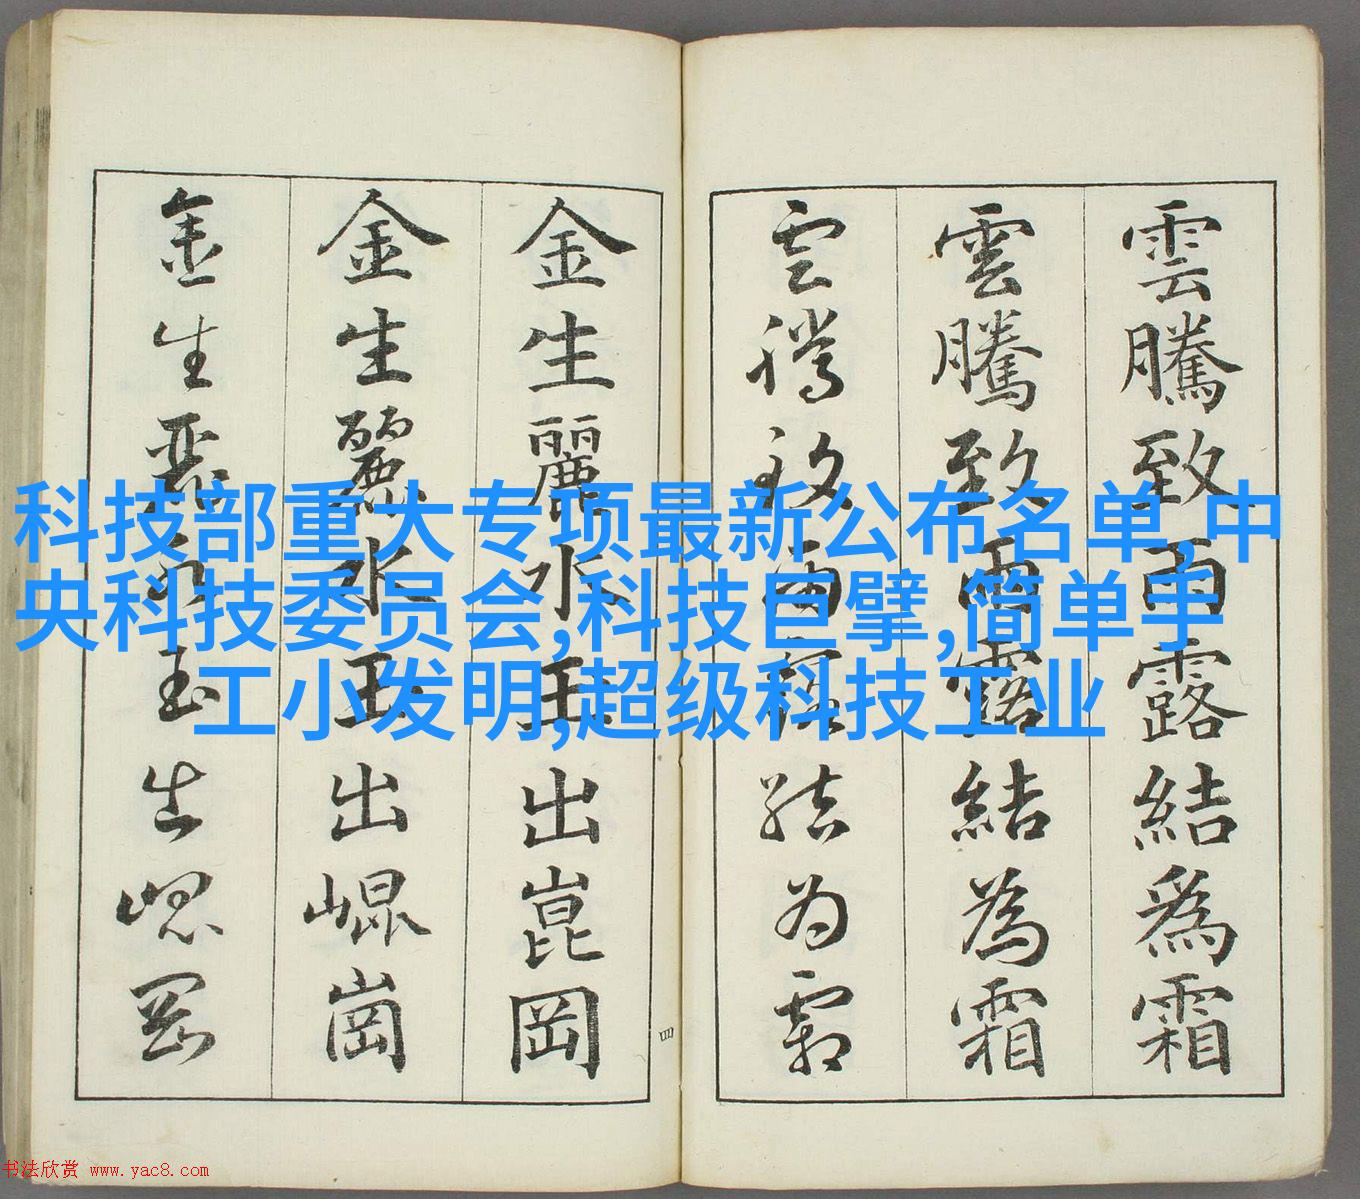 科技部重大专项最新公布名单,中
央科技委员会,科技巨擘,简单手
工小发明,超级科技工业
雲騰致雨露結為霜
雲騰致雨露結為霜
雲騰致雨露結為霜
四
金生麗水玉出崑岡
金生麗水玉出崐崗
金生麗水玉出崐岡
书法欣赏 www.yac8.com